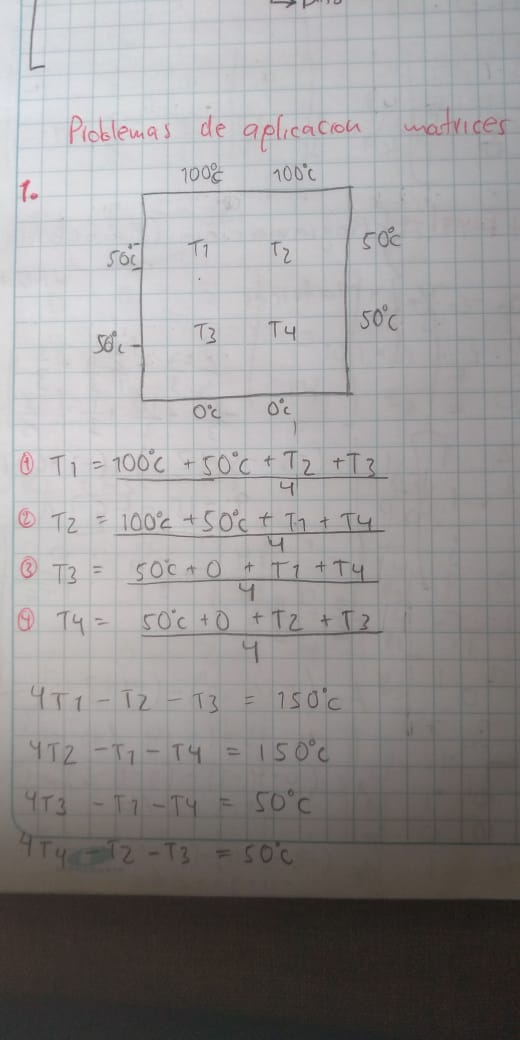 Problemas de aplicacion matrices
100°c 100°c
1.
50°c T1 T2 50°c
50°c T3 T4 50°c
0°c 0°c
① T1 = 100°c + 50°c + T2 + T3
4
② T2 = 100°c + 50°c + T1 + T4
4
③ T3 = 50°c + 0 + T1 + T4
4
④ T4 = 50°c + 0 + T2 + T3
4
4T1 - T2 - T3 = 150°c
4T2 - T1 - T4 = 150°c
4T3 - T1 - T4 = 50°c
4T4 - T2 - T3 = 50°c